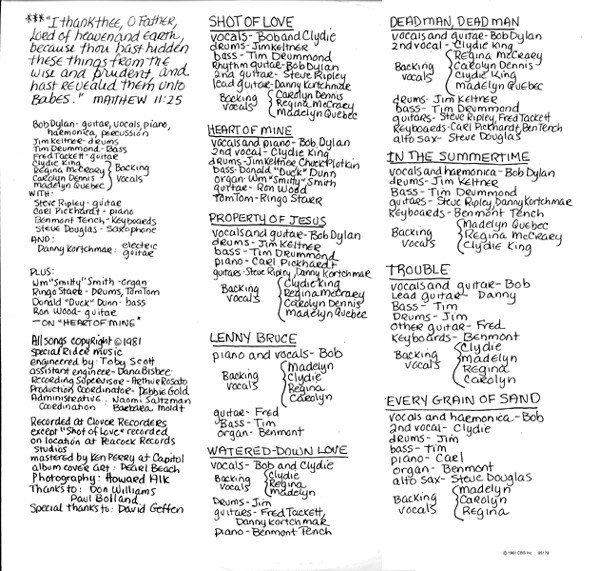 ***"I thank thee, O Father,
Lord of heaven and earth,
because thou hast hidden
these things from the
wise and prudent, and
hast revealed them unto
Babes." MATTHEW 11:25
Bob Dylan - guitar, vocals, piano,
harmonica, percussion
Jim Keltner - drums
Tim Drummond - Bass
Fred Tackett - guitar
Clydie King
Regina McCrary
Carolyn Dennis
Madelyn Quebec
Backing
Vocals
WITH:
Steve Ripley - guitar
Carl Pickhardt - piano
Benmont Tench - Keyboards
Steve Douglas - Saxophone
AND:
Danny Kortchmar: electric
guitar
PLUS:
Wm "Smitty" Smith - Organ
Ringo Starr - DRUMS, TomTom
Donald "Duck" Dunn - bass
Ron Wood - guitar
— ON "HEART OF MINE"
All songs copyright © 1981
Special Rider Music
engineered by: Toby Scott
assistant engineer - Dana Bisbee
Recording Supervisor - Arthur Rosato
Production Coordinator - Debbie Gold
Administrative: Naomi Saltzman
Coordination Barbara Moldt
Recorded at Clover Recorders
except "Shot of Love" recorded
on location at Peacock Records
Studios
mastered by Ken Perry at Capitol
album cover art: Pearl Beach
Photography: Howard Alk
Thanks to: Don Williams
Paul Bolland
Special thanks to: David Geffen
SHOT OF LOVE
vocals - Bob and Clydie
drums - Jim Keltner
bass - Tim Drummond
Rhythm guitar - Bob Dylan
2nd guitar - Steve Ripley
lead guitar - Danny Kortchmar
Backing
vocals
Carolyn Dennis
Regina McCraey
Madelyn Quebec
HEART OF MINE
vocals and piano - Bob Dylan
2nd vocal - Clydie King
drums - Jim Keltner, Chuck Plotkin
bass - Donald "Duck" Dunn
organ - Wm "Smitty" Smith
guitar - Ron Wood
TomTom - Ringo Starr
PROPERTY OF JESUS
vocals and guitar - Bob Dylan
drums - Jim Keltner
bass - Tim Drummond
piano - Carl Pickhardt
guitars - Steve Ripley, Danny Kortchmar
Backing
vocals
Clydie King
Regina McCraey
Carolyn Dennis
Madelyn Quebec
LENNY BRUCE
piano and vocals - Bob
Backing
vocals
Madelyn
Clydie
Regina
Carolyn
guitar - Fred
Bass - Tim
organ - Benmont
WATERED-DOWN LOVE
vocals - Bob and Clydie
Backing
vocals
Clydie
Regina
Madelyn
Drums - Jim
guitars - Fred Tackett,
Danny Kortchmar
piano - Benmont Tench
DEAD MAN, DEAD MAN
vocals and guitar - Bob Dylan
2nd vocal - Clydie King
Backing
vocals
Regina McCreary
Carolyn Dennis
Clydie King
Madelyn Quebec
drums - Jim Keltner
bass - Tim Drummond
guitars - Steve Ripley, Fred Tackett
Keyboards - Carl Pickhardt, Ben Tench
alto sax - Steve Douglas
IN THE SUMMERTIME
vocals and harmonica - Bob Dylan
drums - Jim Keltner
Bass - Tim Drummond
guitars - Steve Ripley, Danny Kortchmar
Keyboards - Benmont Tench
Backing
vocals
Madelyn Quebec
Regina McCreary
Clydie King
TROUBLE
vocals and guitar - Bob
Lead guitar - Danny
Bass - Tim
Drums - Jim
other guitar - Fred
Keyboards - Benmont
Backing
vocals
Clydie
Madelyn
Regina
Carolyn
EVERY GRAIN OF SAND
vocals and harmonica - Bob
2nd vocal - Clydie
drums - Jim
bass - Tim
piano - Carl
organ - Benmont
alto sax - Steve Douglas
Backing
vocals
Madelyn
Carolyn
Regina
© 1981 CBS Inc. 85178